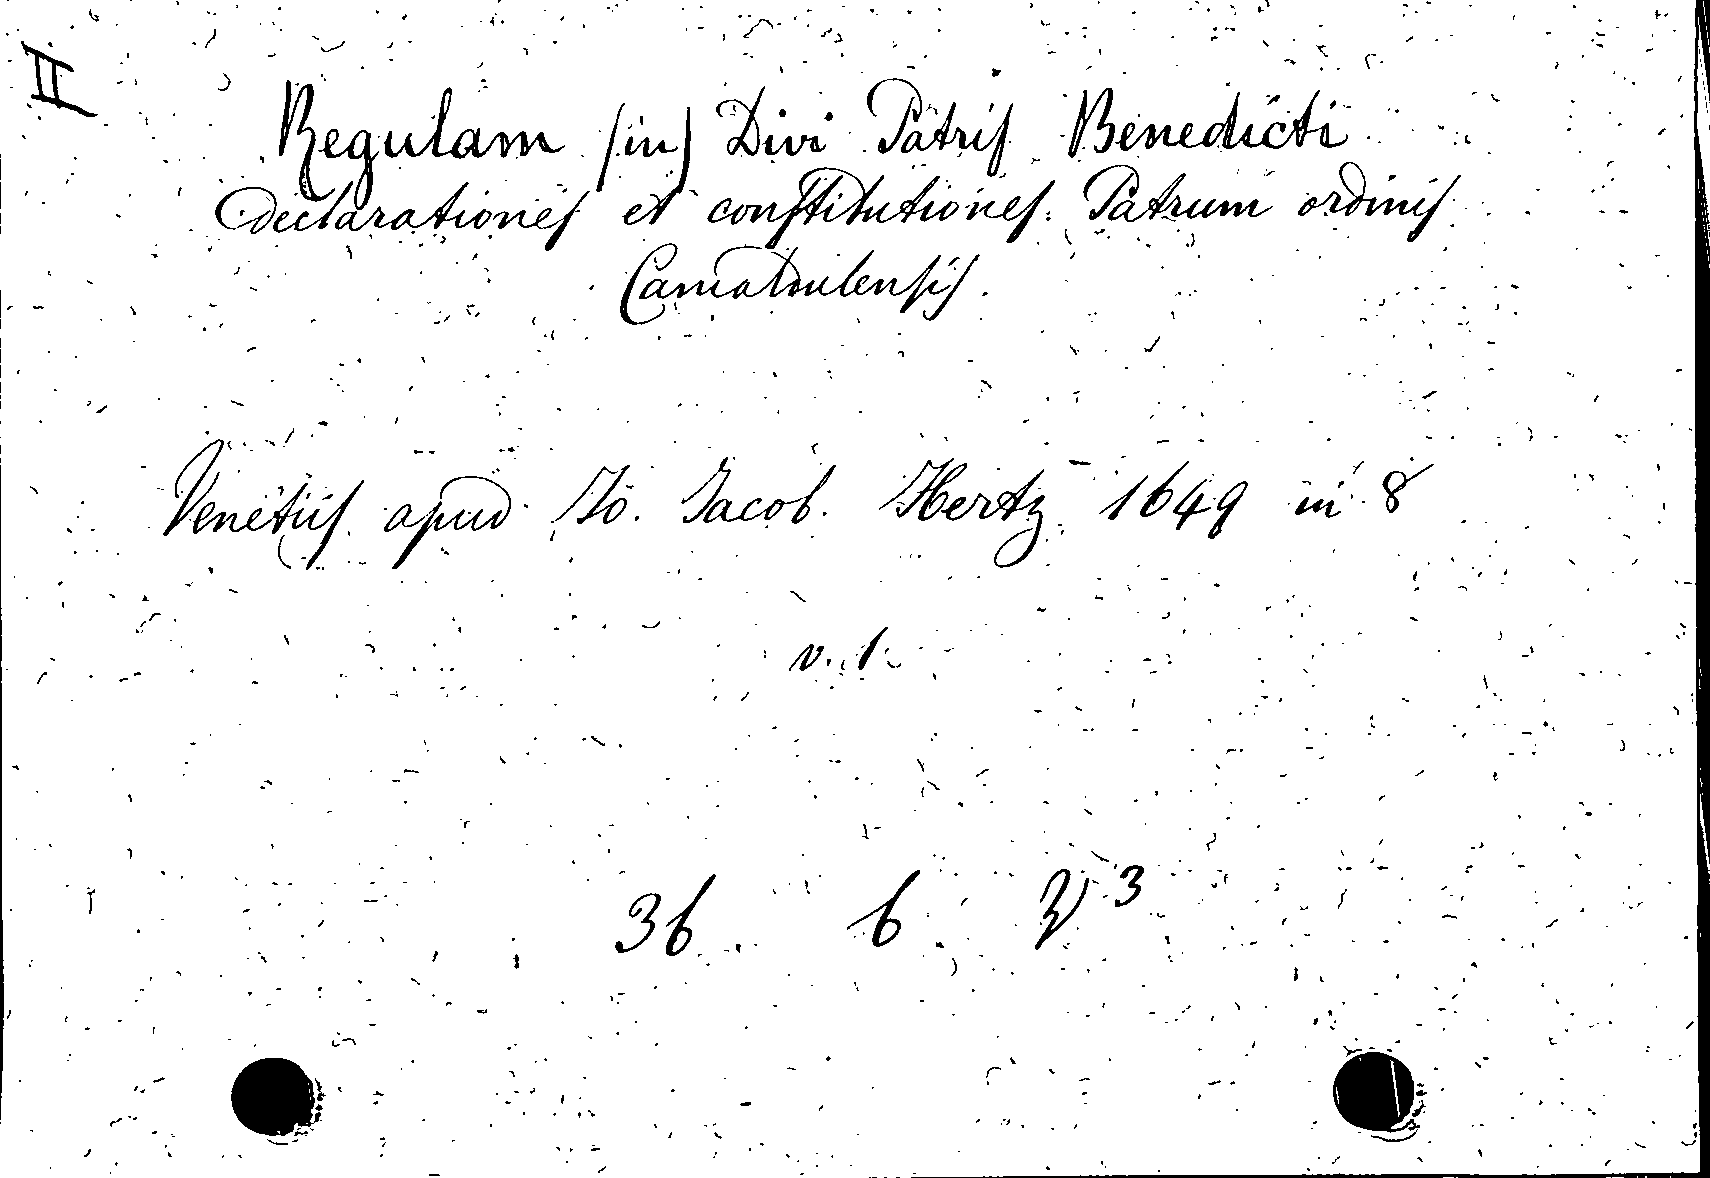 II
Regulam (in) Divi Patris Benedicti
declarationes et constitutiones. Patrum ordinis
Camaldulensis.
Venetiis apud Io. Jacob. Hertz 1649 in 8
v. 1.
36 6 3